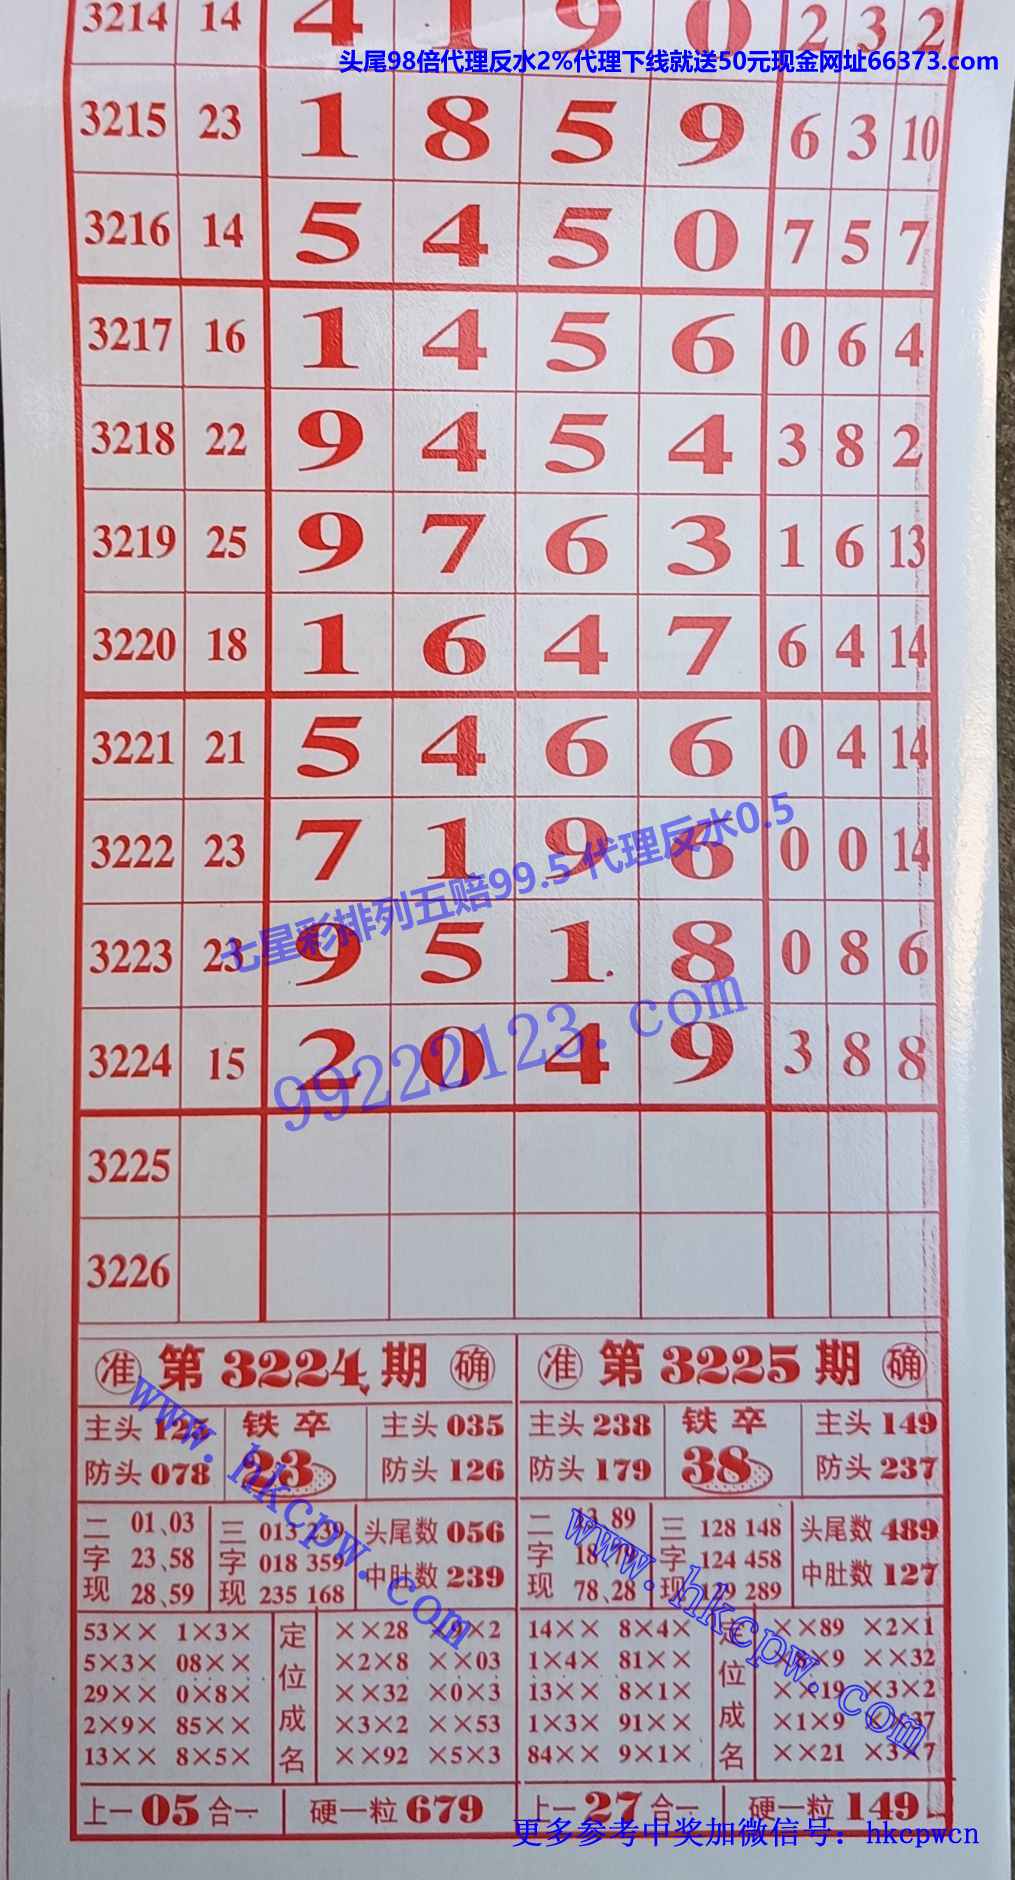 3214 14 4 1 9 0 2 3 2
头尾98倍代理反水2%代理下线就送50元现金网址66373.com
3215 23 1 8 5 9 6 3 10
3216 14 5 4 5 0 7 5 7
3217 16 1 4 5 6 0 6 4
3218 22 9 4 5 4 3 8 2
3219 25 9 7 6 3 1 6 13
3220 18 1 6 4 7 6 4 14
3221 21 5 4 6 6 0 4 14
3222 23 7 1 9 6 0 0 14
七星彩排列五赔99.5 代理反水0.5
3223 23 9 5 1 8 0 8 6
99222123.com
3224 15 2 0 4 9 3 8 8
3225
3226
准 第 3224 期 确
主头 铁卒 主头 035
防头 078 23 防头 126
二字现 01、03 三字现 013 239 头尾数 056
23、58 018 359 中肚数 239
28、59 235 168
53×× 1×3× 定位成名 ××28
5×3× 08×× ×2×8 ××03
29×× 0×8× ××32 ×0×3
2×9× 85×× ×3×2 ××53
13×× 8×5× ××92 ×5×3
上一 05 合一 硬一粒 679
准 第 3225 期 确
主头 238 铁卒 主头 149
防头 179 38 防头 237
二字现 89 三字现 128 148 头尾数 489
124 458 中肚数 127
78、28 129 289
14×× 8×4× 定位成名 ××89 ×2×1
1×4× 81×× ××32
13×× 8×1× ××19 ×3×2
1×3× 91×× ×1×9 ××37
84×× 9×1× ××21 ×3×7
上一 27 合一 硬一粒 149
www.hkcpw.com
www.hkcpw.com
更多参考中奖加微信号：hkcpwcn